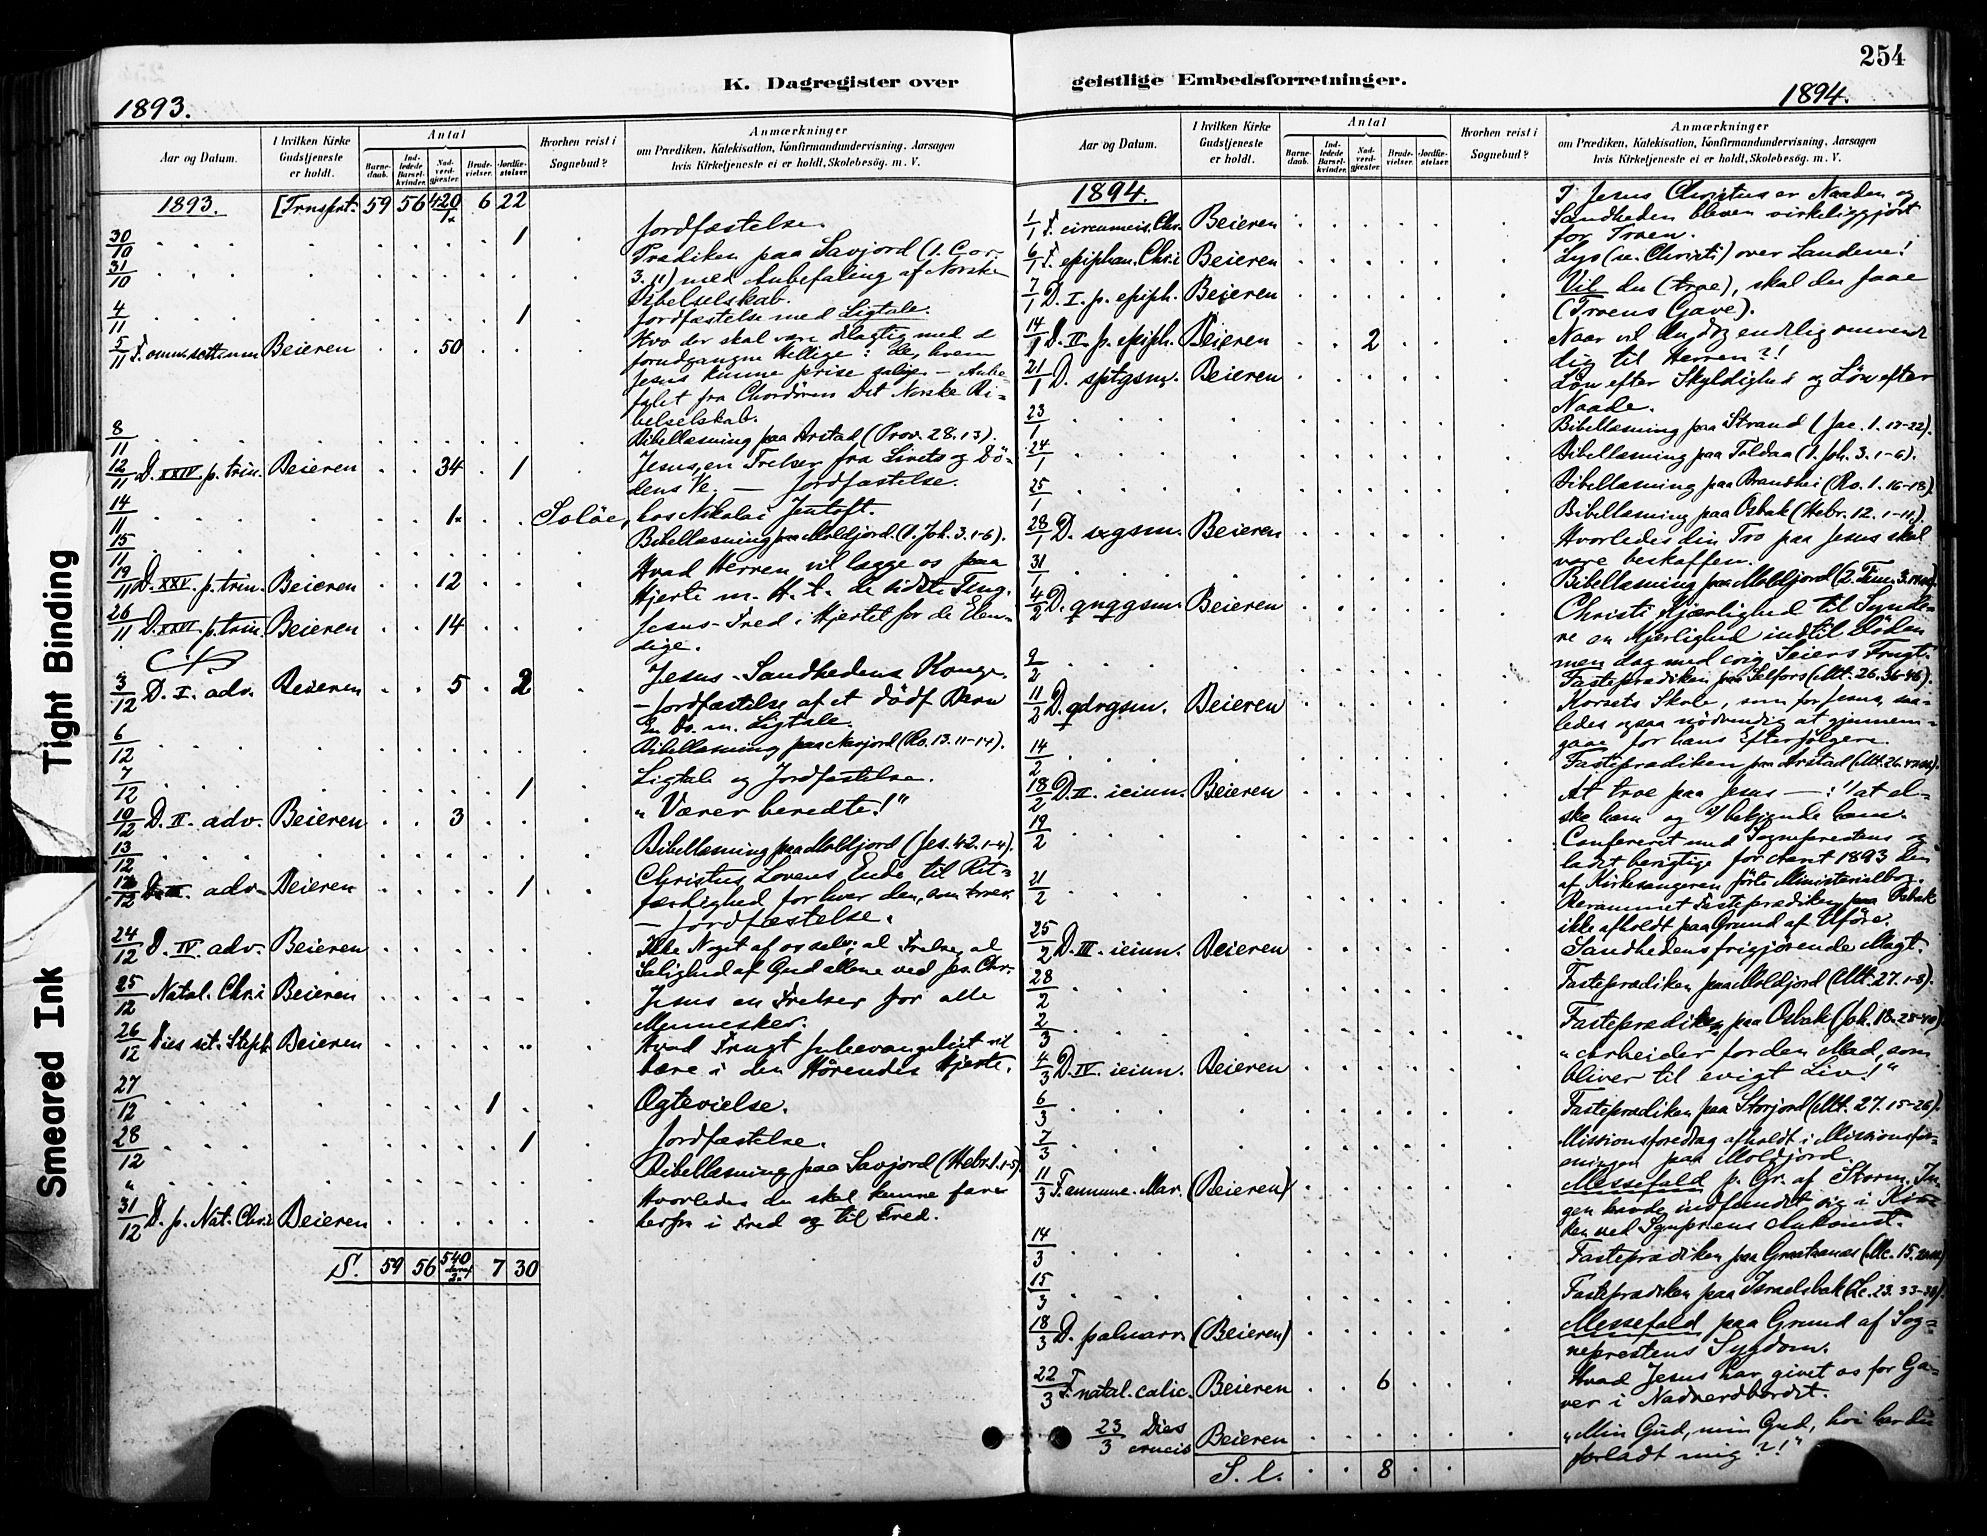 254
K. Dagregister over
geistlige Embedsforretninger.
1893.
Aar og Datum.
I hvilken Kirke Gudstjeneste er holdt.
Antal
Barnedaab.
Indledede Barselkvinder.
Nadverdgjæster.
Brudevielser.
Jordfæstelser.
Hvorhen reist i Sognebud?
Anmærkninger
om Prædiken, Katekisation, Konfirmandundervisning, Aarsagen
hvis Kirketjeneste ei er holdt, Skolebesög. m. V.
1893. [Trnsprt. 59 56 420 6 22
30/10 1 Jordfæstelse.
31/10 Prædiken paa Savjord (1. Cor.
3. 11) med Anbefaling af Norske
Bibelselskab.
4/11 1 Jordfæstelse med Ligtale.
5/11 F. omn. sctorum Beieren 50 Hvo der skal være delagtig med de
forudgangne Hellige: de, hvem
Jesus kunne prise salige. – Anbe-
falet fra Chordören Det Norske Bi-
belselskab.
8/11 Bibellæsning paa Arstad (Prov. 28. 13).
12/11 D. XXIV. p. trin. Beieren 34 1 Jesus, en Frelser fra Livets og Dö-
dens Ve. — Jordfæstelse.
14/11 1. Solöe, hos Nikolai Jentoft.
15/11 Bibellæsning paa Moldjord. (1. Joh. 3. 1-6).
19/11 D. XXV. p. trin. Beieren 12 Hvad Herren vil lægge os paa
Hjerte m. H. t. de sidste Ting.
26/11 D. XXVI. p. trin. Beieren 14 Jesus-Fred i Hjertet for de Elen-
dige.
3/12 D. I. adv. Beieren 5 2 Jesus – Sandhedens Konge.
– Jordfæstelse af et dödf. Barn
En Do. m. Ligtale.
6/12 Bibellæsning paa Nesjord (Ro. 13. 11-14).
7/12 1 Ligtale og Jordfæstelse.
10/12 D. II. adv. Beieren 3 "Værer beredte!"
13/12 Bibellæsning paa Moldjord (Jes. 42. 1-4).
17/12 D. III. adv. Beieren 1 Christus Lovens Ende til Ret-
færdighed for hver den, som troer.
— Jordfæstelse.
24/12 D. IV. adv. Beieren Ikke Noget af os selv; al Frelse, al
Salighed af Gud allene ved Jes. Chr.
25/12 Natal. Chr.i Beieren Jesus en Frelser for alle
Mennesker.
26/12 Dies sct. Steph. Beieren Hvad Frugt Juleevangeliet vil
bære i den Hörendes Hjerte.
27/12 1 Ægtevielse.
28/12 1 Jordfæstelse.
" Bibellæsning paa Savjord (Hebr. 1. 1-5)
31/12 D. p. Nat. Chr.i Beieren Hvorledes du skal kunne fare
herfra i Fred og til Fred.
S. 59 56 540 7 30
1894.
Aar og Datum.
I hvilken Kirke Gudstjeneste er holdt.
Antal
Barnedaab.
Indledede Barselkvinder.
Nadverdgjæster.
Brudevielser.
Jordfæstelser.
Hvorhen reist i Sognebud?
Anmærkninger
om Prædiken, Katekisation, Konfirmandundervisning, Aarsagen
hvis Kirketjeneste ei er holdt, Skolebesög. m. V.
1894.
1/1 F. circumcis. Chr. Beieren I Jesus Christus er Naaden og
Sandheden bleven virkeliggjort
for Troen.
6/1 F. epiphan. Chr.i Beieren Lys (ɔ: Christi) over Landene!
7/1 D. I. p. epiph. Beieren Vil du (troe), skal du faae
(Troens Gave).
14/1 D. II. p. epiph. Beieren 2 Naar vil du dog endelig omvende
dig til Herren?!
21/1 D. sptgsm. Beieren Lön efter Skyldighed og Lön efter
Naade.
23/1 Bibellæsning paa Strand (Jac. 1. 17-22).
24/1 Bibellæsning paa Toldaa (1. Joh. 3. 1-6).
25/1 Bibellæsning paa Brandhei (Ro. 1. 16-18)
28/1 D. sxgsm. Beieren Bibellæsning paa Osbak (Hebr. 12. 1-11).
Hvorledes din Tro paa Jesus skal
være beskaffen.
31/1 Bibellæsning paa Moldjord (2. Tim. 3.
4/2 D. qnqgsm. Beieren Christi Kjærlighed til Synde-
re en Kjærlighed indtil Döden
men dog med evig Seiers Frugt.
9/2 Fasteprædiken paa Selfors (Mt. 26. 36-46).
11/2 D. qdrgsm. Beieren Korsets Skole, som for Jesus, saa-
ledes ogsaa nödvendig at gjennem-
gaae for hans Efterfölgere.
14/2 Fasteprædiken paa Arstad (Mt. 26.
18/2 D. II. ieiun. Beieren At troe paa Jesus —: 1/ at el-
ske ham og 2/ bekjende ham.
19/2 Confereret med Sognepresten og
ladet berigtige for Aaret 1893 den
af Kirkesangeren förte Ministerialbog.
21/2 Berammet Fasteprædiken paa Osbak
ikke afholdt paa Grund af Uföre.
25/2 D. III. ieiun. Beieren Sandhedens frigjörende Magt.
28/2 Fasteprædiken paa Moldjord (Mt. 27. 1-8).
2/3 Fasteprædiken paa Osbak (Joh. 18. 28-40)
4/3 D. IV. ieiun. Beieren "Arbeider for den Mad, som
bliver til evigt Liv!"
6/3 Fasteprædiken paa Storjord (Mt. 27. 15-26).
7/3 Missionsforedrag afholdt i Missionsfor-
eningen paa Moldjord.
11/3 F. annunc. Mar. (Beieren) Messefald p. Gr. af Storm. In-
gen havde indfundet sig i Kir-
ken ved Sgnprstens Ankomst.
14/3 Fasteprædiken paa Graatanæs (Mc. 15.
15/3 Fasteprædiken paa Israelsbak (Lc. 23. 33-38).
18/3 D. palmarr. (Beieren) Messefald paa Grund af Sog-
neprestens Sygdom.
22/3 F. natal. calic. Beieren 6 Hvad Jesus har givet os for Ga-
ver i Nadverdbordet.
23/3 Dies crucis Beieren "Min Gud, min Gud, hvi har du
forladt mig?!"
S. l. 8
Tight Binding
Smeared Ink